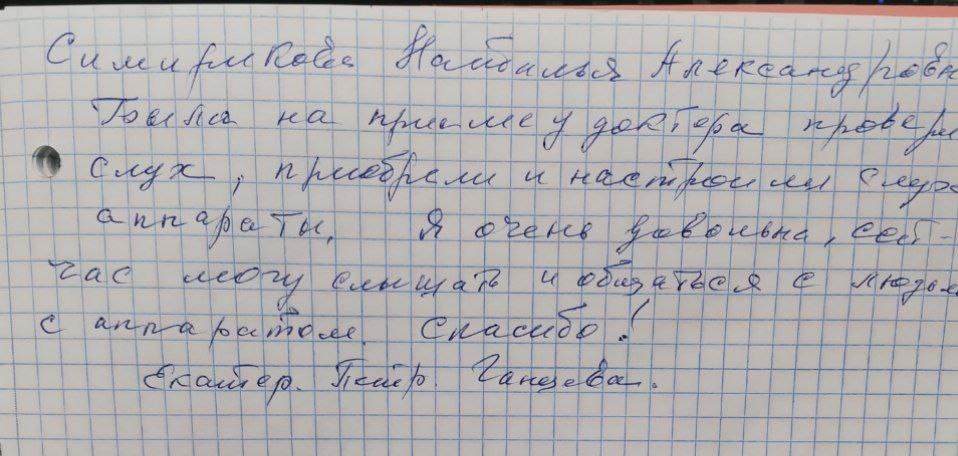 Симирикова Наталья Александровн
Была на приеме у доктера провери
слух, приобрели и настроили слухо
аппараты. Я очень довольна, сей-
час могу слышать и общаться с людьм
с аппаратом. Спасибо!
Екатер. Петр. Ганцева.